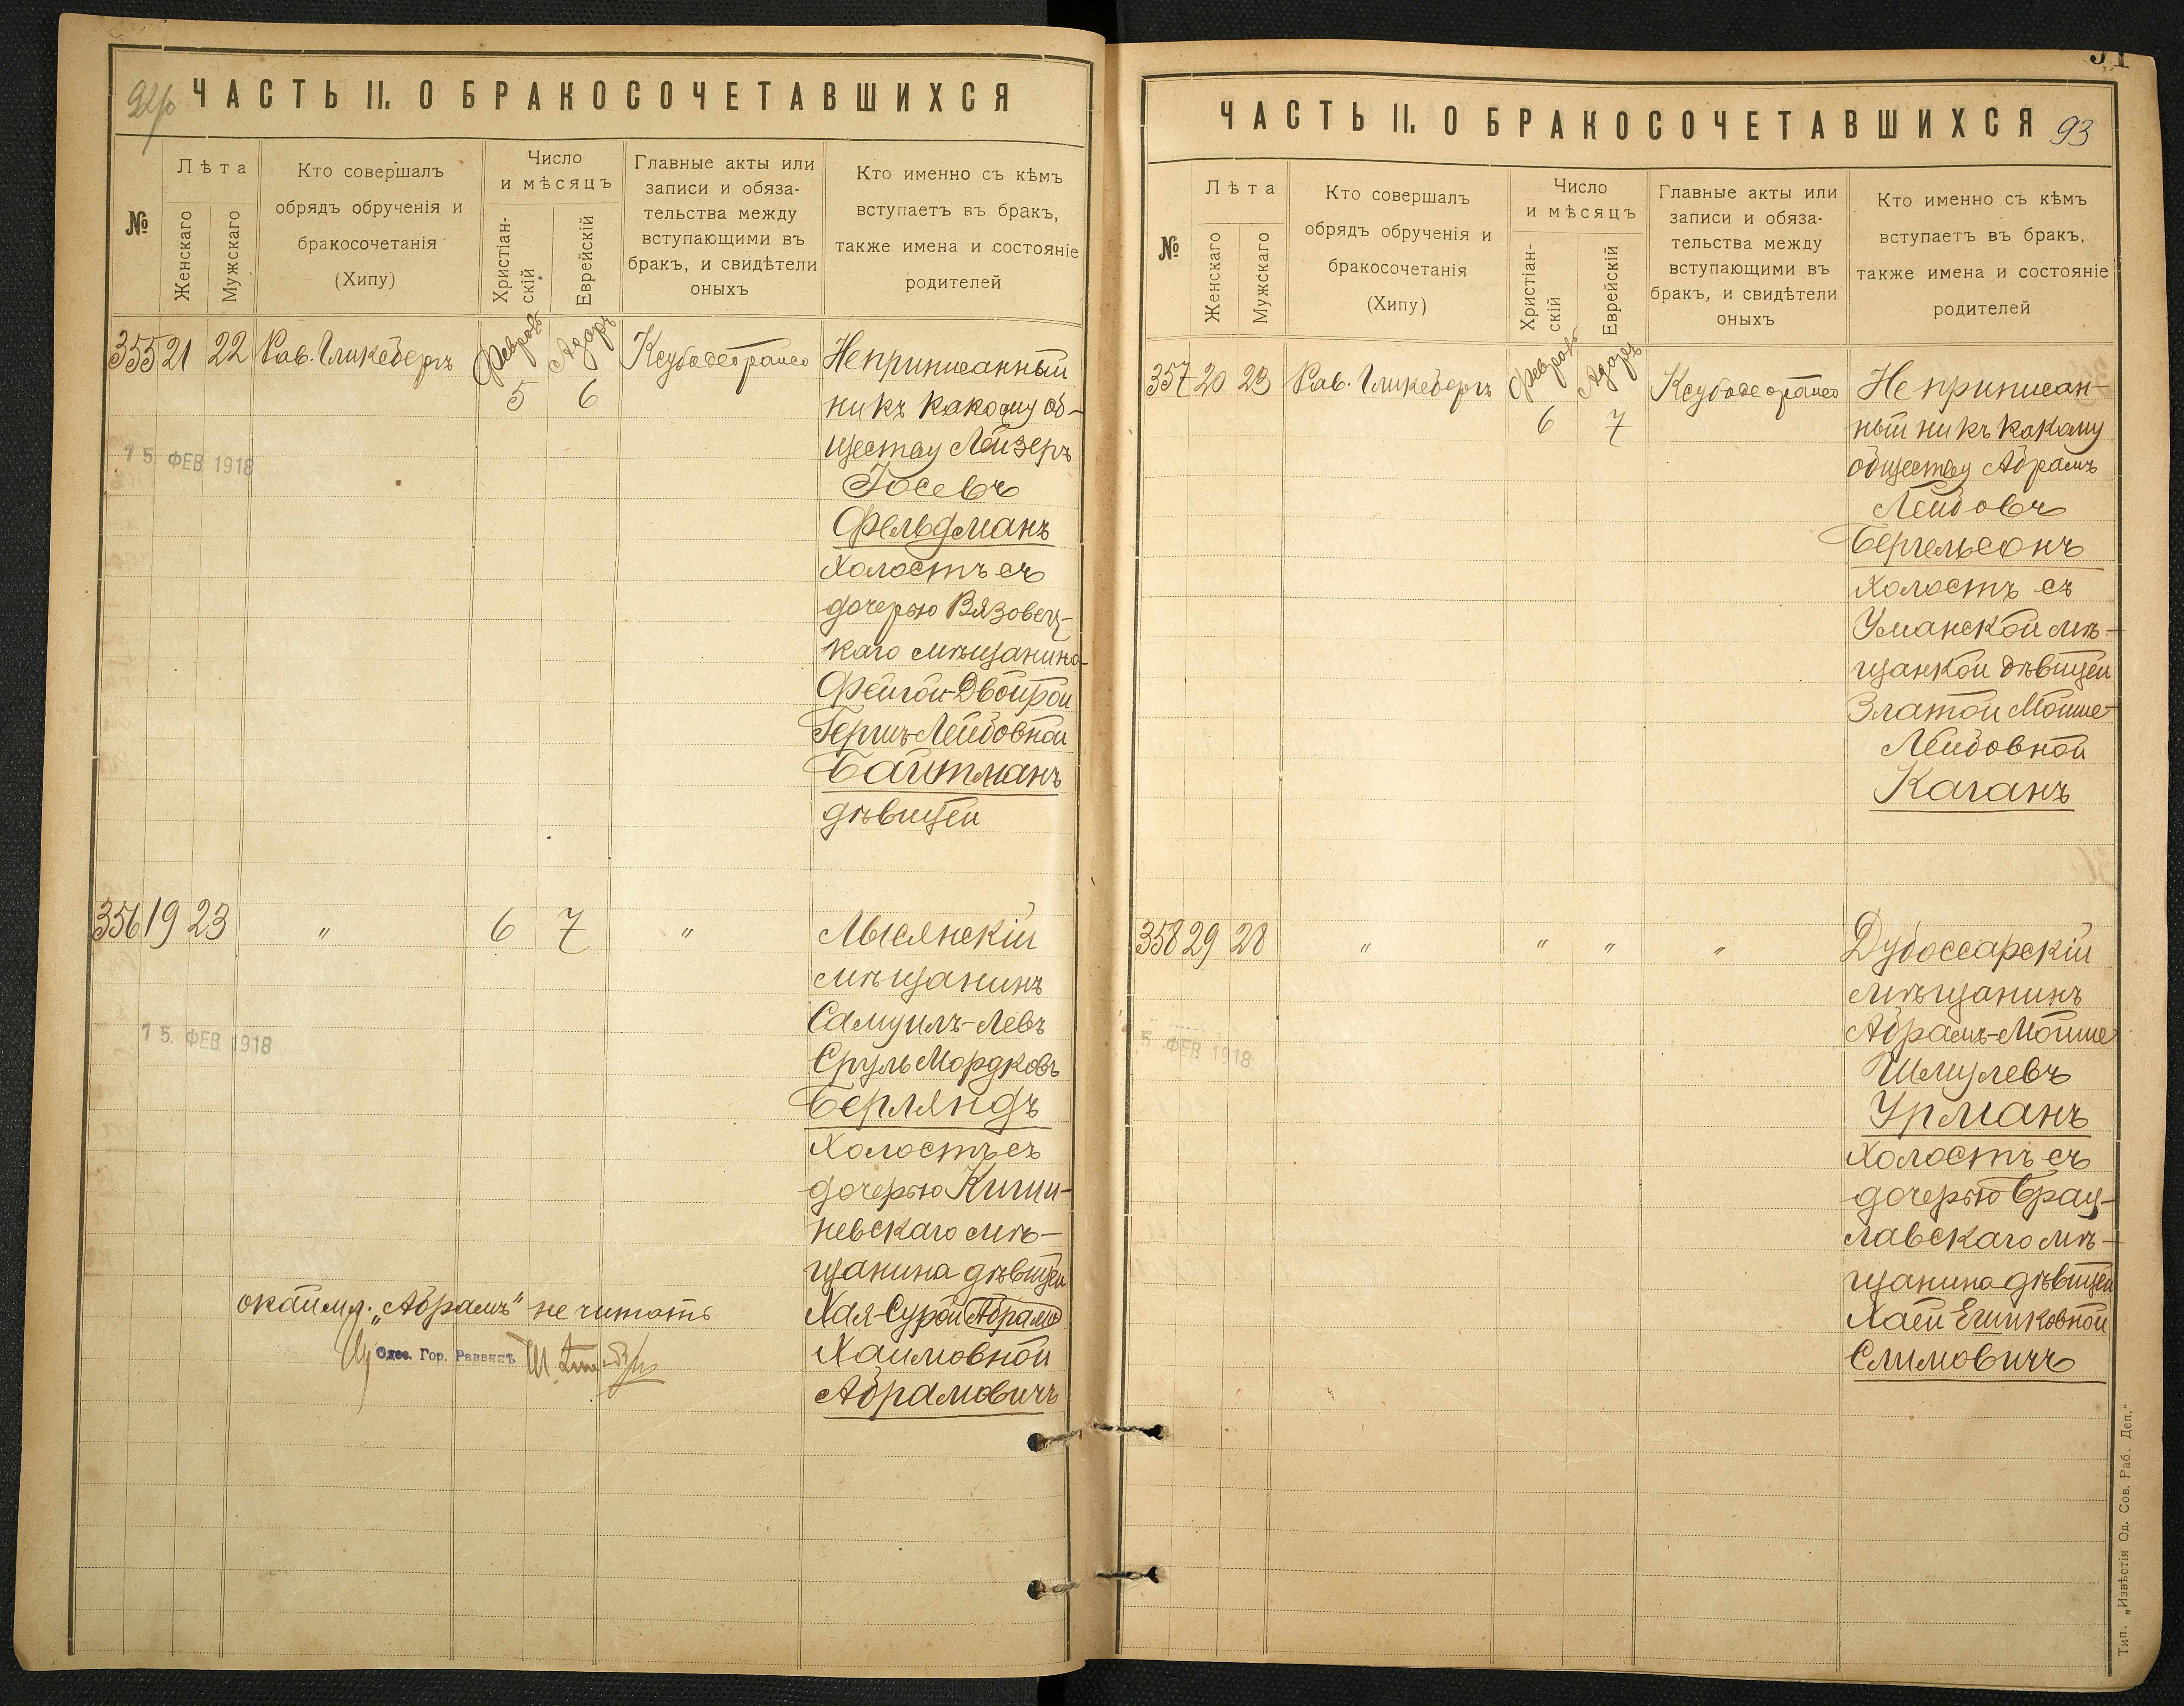 92/о
ЧАСТЬ II. О БРАКОСОЧЕТАВШИХСЯ
№
Лѣта
Женскаго
Мужскаго
Кто совершалъ
обрядъ обрученія и
бракосочетанія
(Хипу)
Число
и мѣсяцъ
Христіан-
скій
Еврейскій
Главные акты или
записи и обяза-
тельства между
вступающими въ
бракъ, и свидѣтели
оныхъ
Кто именно съ кѣмъ
вступаетъ въ бракъ,
также имена и состояніе
родителей
355 21 22 Рав. Гликсбергъ Февраль 5 Адоръ 6
Неприписанный
ни къ какому об-
ществу Лейзеръ
Іосевъ
Фельдманъ
холостъ съ
дочерью Вязовец-
каго мѣщанина
Фейгой-Двойрой
Гершъ Лейбовной
Байтманъ
дѣвицей
15. ФЕВ 1918
356 19 23 " 6 7 "
Лысянскій
мѣщанинъ
Самуилъ-Левъ
Сруль Мордковъ
Берляндъ
холостъ съ
дочерью Киши-
невскаго мѣ-
щанина дѣвицей
Хая-Сурой Абрамъ
Хаимовной
Абрамовичъ
15. ФЕВ 1918
окаймл. "Абрамъ" не читать
Одес. Гор. Раввинъ
93
ЧАСТЬ II. О БРАКОСОЧЕТАВШИХСЯ
№
Лѣта
Женскаго
Мужскаго
Кто совершалъ
обрядъ обрученія и
бракосочетанія
(Хипу)
Число
и мѣсяцъ
Христіан-
скій
Еврейскій
Главные акты или
записи и обяза-
тельства между
вступающими въ
бракъ, и свидѣтели
оныхъ
Кто именно съ кѣмъ
вступаетъ въ бракъ,
также имена и состояніе
родителей
357 20 23 Рав. Гликсбергъ Февраль 6 Адоръ 7
Не приписан-
ный ни къ какому
обществу Абрамъ
Лейбовъ
Бергельсонъ
холостъ съ
Уманской мѣ-
щанкой дѣвицей
Златой Мойше-
Лейбовной
Каганъ
358 29 28 " " " "
Дубоссарскій
мѣщанинъ
Абрамъ-Мойше
Шмулевъ
Урманъ
холостъ съ
дочерью Брац-
лавскаго мѣ-
щанина дѣвицей
Хаей Ешиковной
Слимовичъ
5. ФЕВ 1918
Тип. „Извѣстія Од. Сов. Раб. Деп."